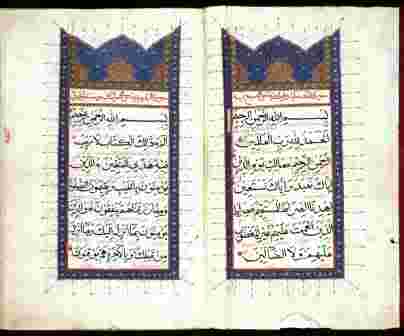 بسم الله الرحمن الرحيم
الحمد لله رب العلمين
الرحمن الرحيم مالك يوم الدين
اياك نعبد واياك نستعين
اهدنا الصراط المستقيم صراط
الذين انعمت عليهم غير المغضوب
عليهم ولا الضالين
بسم الله الرحمن الرحيم
الم ذلك الكتاب لا ريب
فيه هدى للمتقين الذين
يؤمنون بالغيب ويقيمون الصلوة
ومما رزقناهم ينفقون والذين
يؤمنون بما انزل اليك وما انزل
من قبلك وبالاخرة هم يوقنون